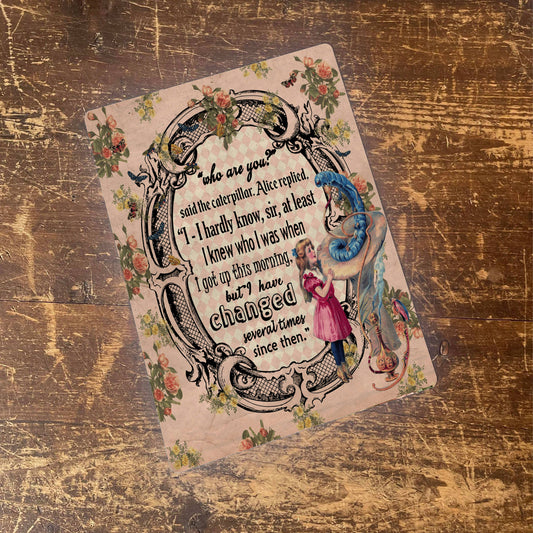 "who are you?"
said the caterpillar. Alice replied,
"I - I hardly know, sir, at least
I knew who I was when
I got up this morning,
but "I have
changed
several times
since then."